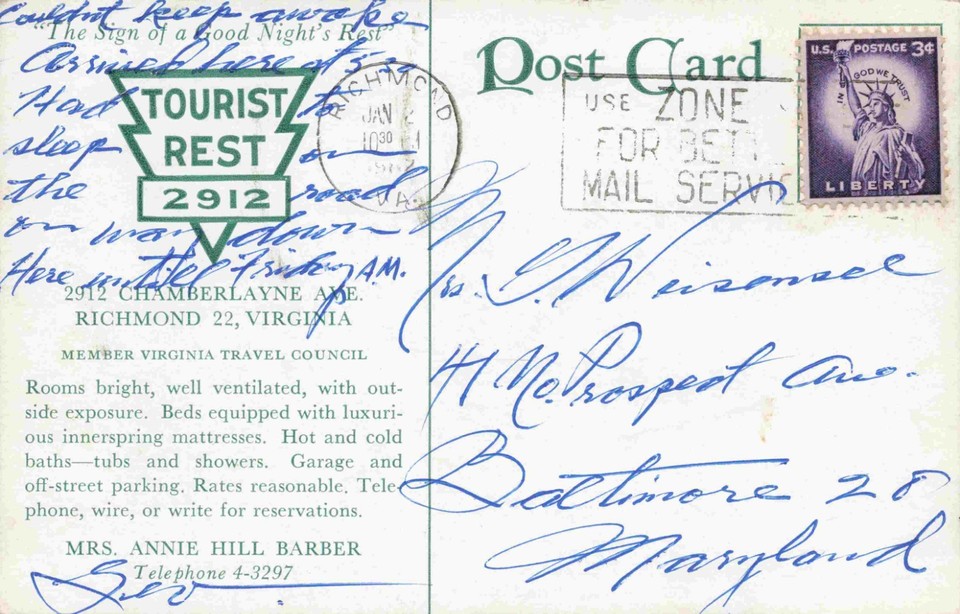 Couldnt keep awake
"The Sign of a Good Night's Rest"
Arrived here at 5
Had to
sleep on
the road
on way down
Here until Friday A.M.
TOURIST
REST
2912
2912 CHAMBERLAYNE AVE.
RICHMOND 22, VIRGINIA
MEMBER VIRGINIA TRAVEL COUNCIL
Rooms bright, well ventilated, with out-
side exposure. Beds equipped with luxuri-
ous innerspring mattresses. Hot and cold
baths—tubs and showers. Garage and
off-street parking. Rates reasonable. Tele-
phone, wire, or write for reservations.
MRS. ANNIE HILL BARBER
Telephone 4-3297
Post Card
RICHMOND
JAN
10 30
VA.
USE ZONE
FOR BETT
MAIL SERVIC
U.S. POSTAGE 3¢
IN GOD WE TRUST
LIBERTY
Mrs. G. Weisensel
41 No. Prospect Ave.
Baltimore 28
Maryland